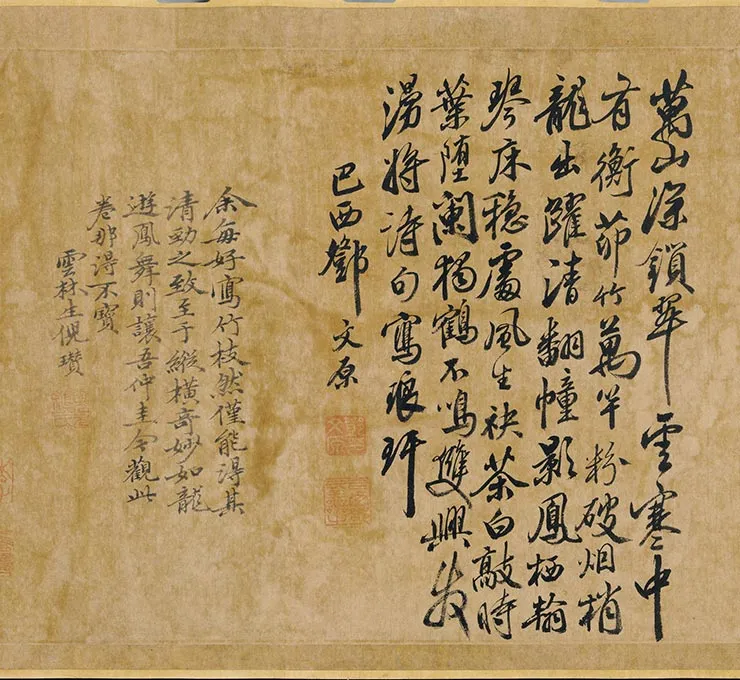 萬山深鎖翠雲寒中
有衡茆竹萬竿粉破烟梢
龍出躍清翻幢影鳳栖翰
琴床穏處風生袂茶臼敲時
葉墮闌獨鶴不鳴雙興發
漫將詩句寫琅玕
巴西鄧文原
余每好寫竹枝然僅能得其
清勁之致至于縱橫奇妙如龍
遊鳳舞則讓吾仲圭今觀此
卷那得不寶
雲林生倪瓚